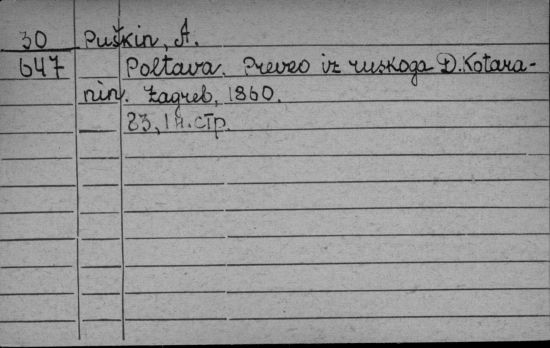 30 Puškin, A.
647 Poltava. Preveo iz ruskoga D. Kotara-
nin. Zagreb, 1860.
83, 1 н. стр.